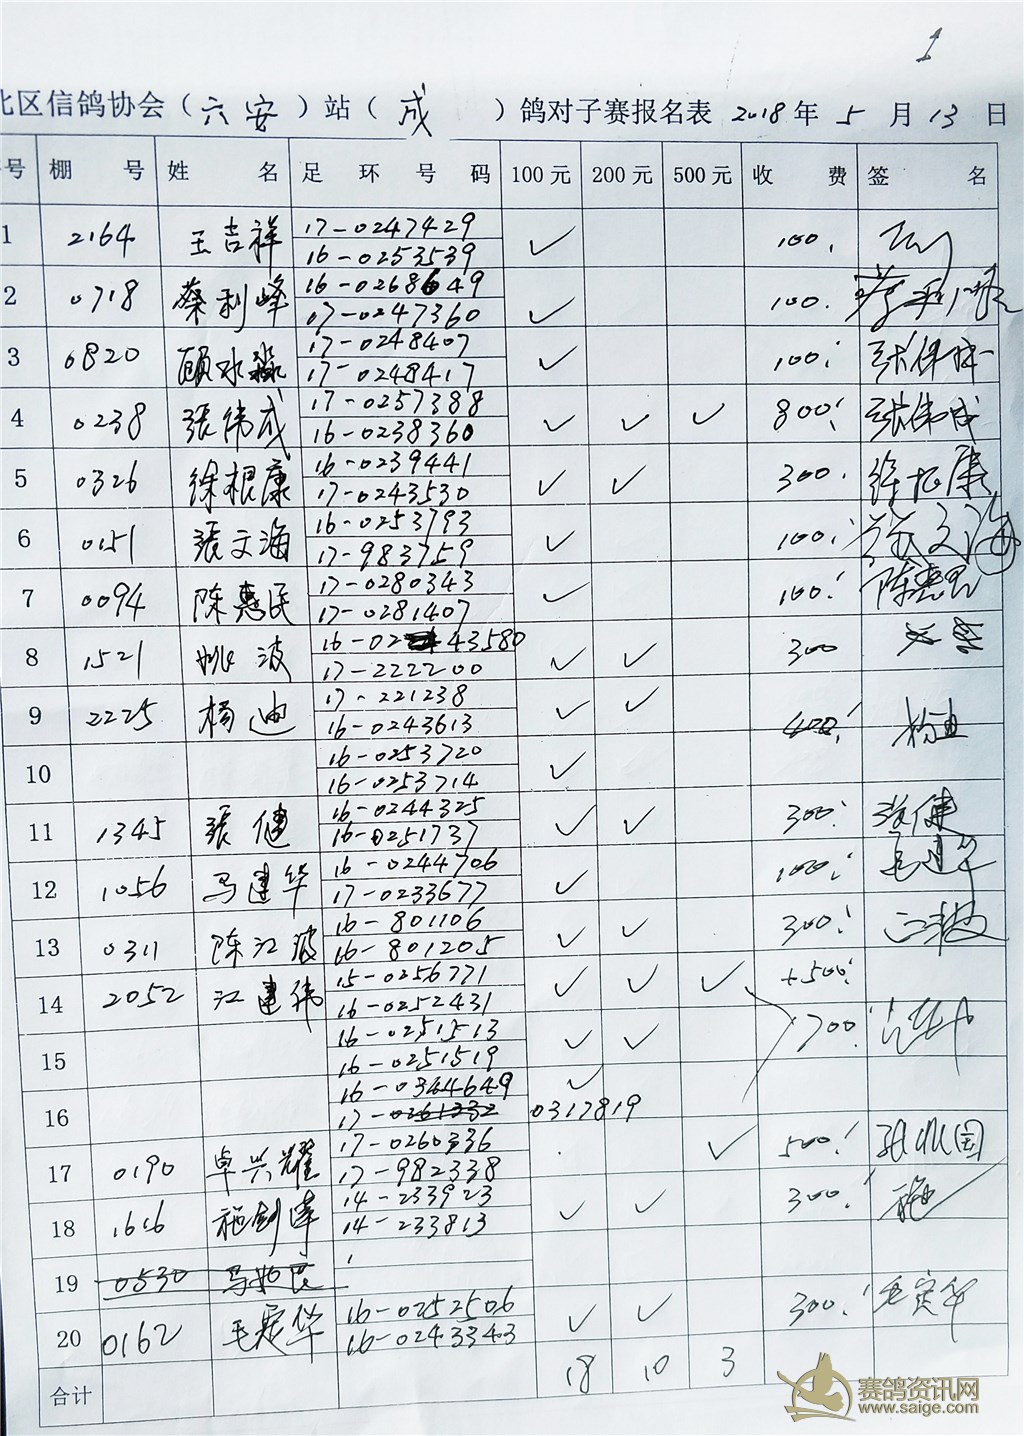 1
北区信鸽协会（六安）站（成　）鸽对子赛报名表 2018年 5 月 13 日
号 棚号 姓名 足环号码 100元 200元 500元 收费 签名
1 2164 王吉祥 17-0247429 ✓ 100.
16-0253539
2 0718 蔡利峰 16-0268649 ✓ 100.
07-0247360
3 0820 顾水淼 17-0248407 ✓ 100.
17-0248417
4 0238 张伟成 17-0257388 ✓ ✓ ✓ 800. 张伟成
16-0238360
5 0326 徐根康 16-0239441 ✓ ✓ 300. 徐根康
17-0243530
6 0151 張文海 16-0253793 ✓ 100. 张文海
17-983759
7 0094 陈惠民 17-0280343 ✓ 100. 陈惠民
17-0281407
8 1521 姚波 16-0243580 ✓ ✓ 300
17-222200
9 2225 杨迪 17-221238 ✓ ✓ 400. 杨迪
16-0243613
10 16-0253720 ✓
16-0253714
11 1345 張健 16-0244325 ✓ ✓ 300. 张健
16-0251737
12 1056 马建华 16-0244706 ✓ 100.
17-0233677
13 0311 陈江波 16-801106 ✓ ✓ 300. 江波
16-801205
14 2052 江建伟 15-0256771 ✓ ✓ ✓ +500.
16-0252431
15 16-0251513 ✓ ✓ 700.
16-0251519
16 16-0344649 ✓
17-0261232 0317819
17 0190 卓兴耀 17-0260336 ✓ 500.
17-982338
18 1616 施剑峰 14-233923 ✓ ✓ 300. 施
14-233813
19 0530
20 0162 毛定华 16-0252506 ✓ ✓ 300. 毛定华
16-0243343
合计 18 10 3
赛鸽资讯网
www.saige.com